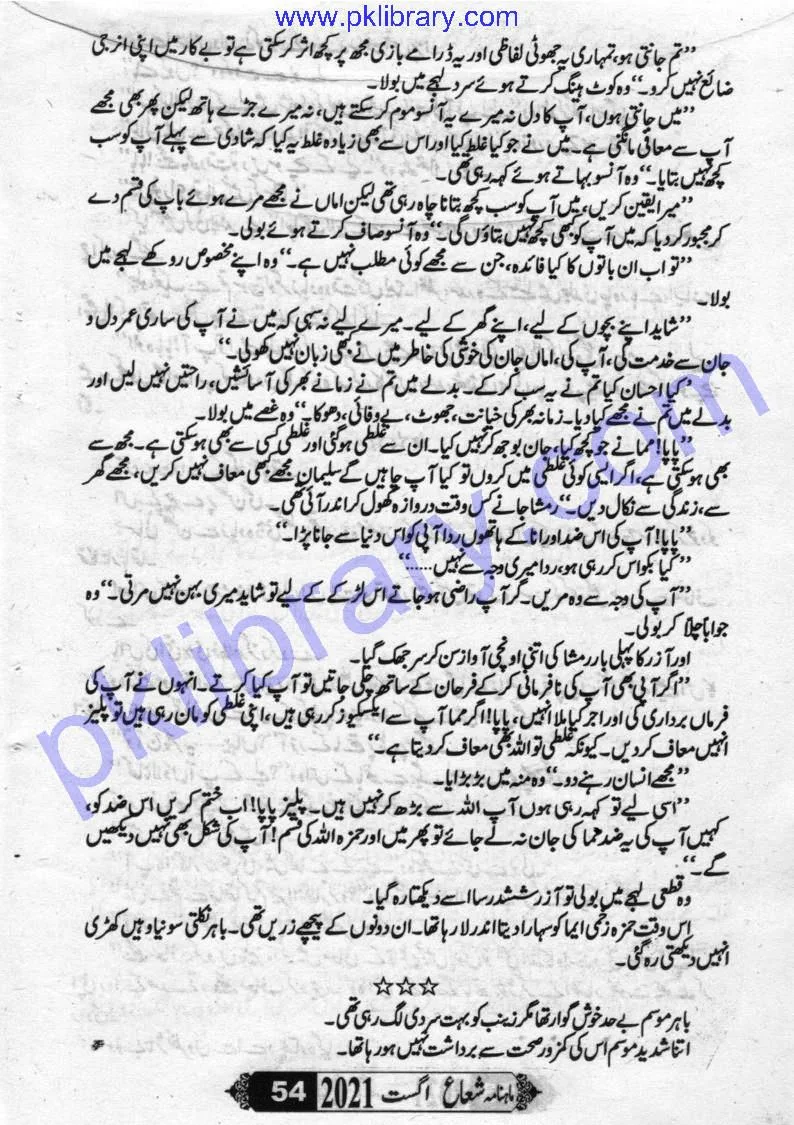 www.pklibrary.com
”تم جانتی ہو، تمہاری یہ جھوٹی لفاظی اور یہ ڈرامے بازی مجھ پر کچھ اثر کر سکتی ہے تو بے کار میں اپنی انرجی
ضائع نہیں کرو۔“ وہ کوٹ ہینگ کرتے ہوئے سرد لہجے میں بولا۔
”میں جانتی ہوں، آپ کا دل نہ میرے یہ آنسو موم کر سکتے ہیں، نہ میرے جڑے ہاتھ لیکن پھر بھی مجھے
آپ سے معافی مانگنی ہے۔ میں نے جو کیا غلط کیا اور اس سے بھی زیادہ غلط یہ کیا کہ شادی سے پہلے آپ کو سب
کچھ نہیں بتایا۔“ وہ آنسو بہاتے ہوئے کہہ رہی تھی۔
”میرا یقین کریں، میں آپ کو سب کچھ بتانا چاہ رہی تھی لیکن اماں نے مجھے مرے ہوئے باپ کی قسم دے
کر مجبور کر دیا کہ میں آپ کو بھی کچھ نہیں بتاؤں گی۔“ وہ آنسو صاف کرتے ہوئے بولی۔
”تو اب ان باتوں کا کیا فائدہ، جن سے مجھے کوئی مطلب نہیں ہے۔“ وہ اپنے مخصوص روکھے لہجے میں
بولا۔
”شاید اپنے بچوں کے لیے، اپنے گھر کے لیے۔ میرے لیے نہ سہی کہ میں نے آپ کی ساری عمر دل و
جان سے خدمت کی، آپ کی، اماں جان کی خوشی کی خاطر میں نے بھی زبان نہیں کھولی۔“
”کیا احسان کیا تم نے یہ سب کر کے۔ بدلے میں تم نے زمانے بھر کی آسائشیں، راحتیں نہیں لیں اور
بدلے میں تم نے مجھے کیا دیا۔ زمانہ بھر کی خیانت، جھوٹ، بے وفائی، دھوکا۔“ وہ غصے میں بولا۔
”پاپا! مما نے جو کچھ کیا، جان بوجھ کر نہیں کیا۔ ان سے غلطی ہو گئی اور غلطی کسی سے بھی ہو سکتی ہے۔ مجھ سے
بھی ہو سکتی ہے، اگر ایسی کوئی غلطی میں کروں تو کیا آپ چاہیں گے سلیمان مجھے کبھی معاف نہیں کریں، مجھے گھر
سے، زندگی سے نکال دیں۔“ رمشا جانے کس وقت دروازہ کھول کر اندر آئی تھی۔
”پاپا! آپ کی اس ضد اور انا کے ہاتھوں ردا آپی کو اس دنیا سے جانا پڑا۔“
”کیا بکواس کر رہی ہو، ردا میری وجہ سے نہیں......“
”آپ کی وجہ سے وہ مریں۔ گر آپ راضی ہو جاتے اس لڑکے کے لیے تو شاید میری بہن نہیں مرتی۔“ وہ
جواباً چلا کر بولی۔
اور آزر کا پہلی بار رمشا کی اتنی اونچی آواز سن کر سر جھک گیا۔
”اگر آپی بھی آپ کی نافرمانی کر کے فرحان کے ساتھ چلی جاتیں تو آپ کیا کرتے۔ انہوں نے آپ کی
فرماں برداری کی اور اجر کیا ملا انہیں، پاپا! اگر مما آپ سے ایکسکیوز کر رہی ہیں، اپنی غلطی کو مان رہی ہیں تو پلیز
انہیں معاف کر دیں۔ کیونکہ غلطی تو اللہ بھی معاف کر دیتا ہے۔“
”مجھے انسان رہنے دو۔“ وہ منہ میں بڑبڑایا۔
”اسی لیے تو کہہ رہی ہوں آپ اللہ سے بڑھ کر نہیں ہیں۔ پلیز پاپا! اب ختم کریں اس ضد کو،
کہیں آپ کی یہ ضد مما کی جان نہ لے جائے تو پھر میں اور حمزہ اللہ کی قسم! آپ کی شکل بھی نہیں دیکھیں
گے۔“
وہ قطعی لہجے میں بولی تو آزر ششدر سا اسے دیکھتا رہ گیا۔
اس وقت حمزہ زخمی ایما کو سہارا دیتا اندر لا رہا تھا۔ ان دونوں کے پیچھے زریں تھی۔ باہر نکلتی سونیا وہیں کھڑی
انہیں دیکھتی رہ گئی۔
☆☆☆
باہر موسم بے حد خوش گوار تھا مگر زینب کو بہت سردی لگ رہی تھی۔
اتنا شدید موسم اس کی کمزور صحت سے برداشت نہیں ہو رہا تھا۔
ماہنامہ شعاع اگست 2021 54
pklibrary.com